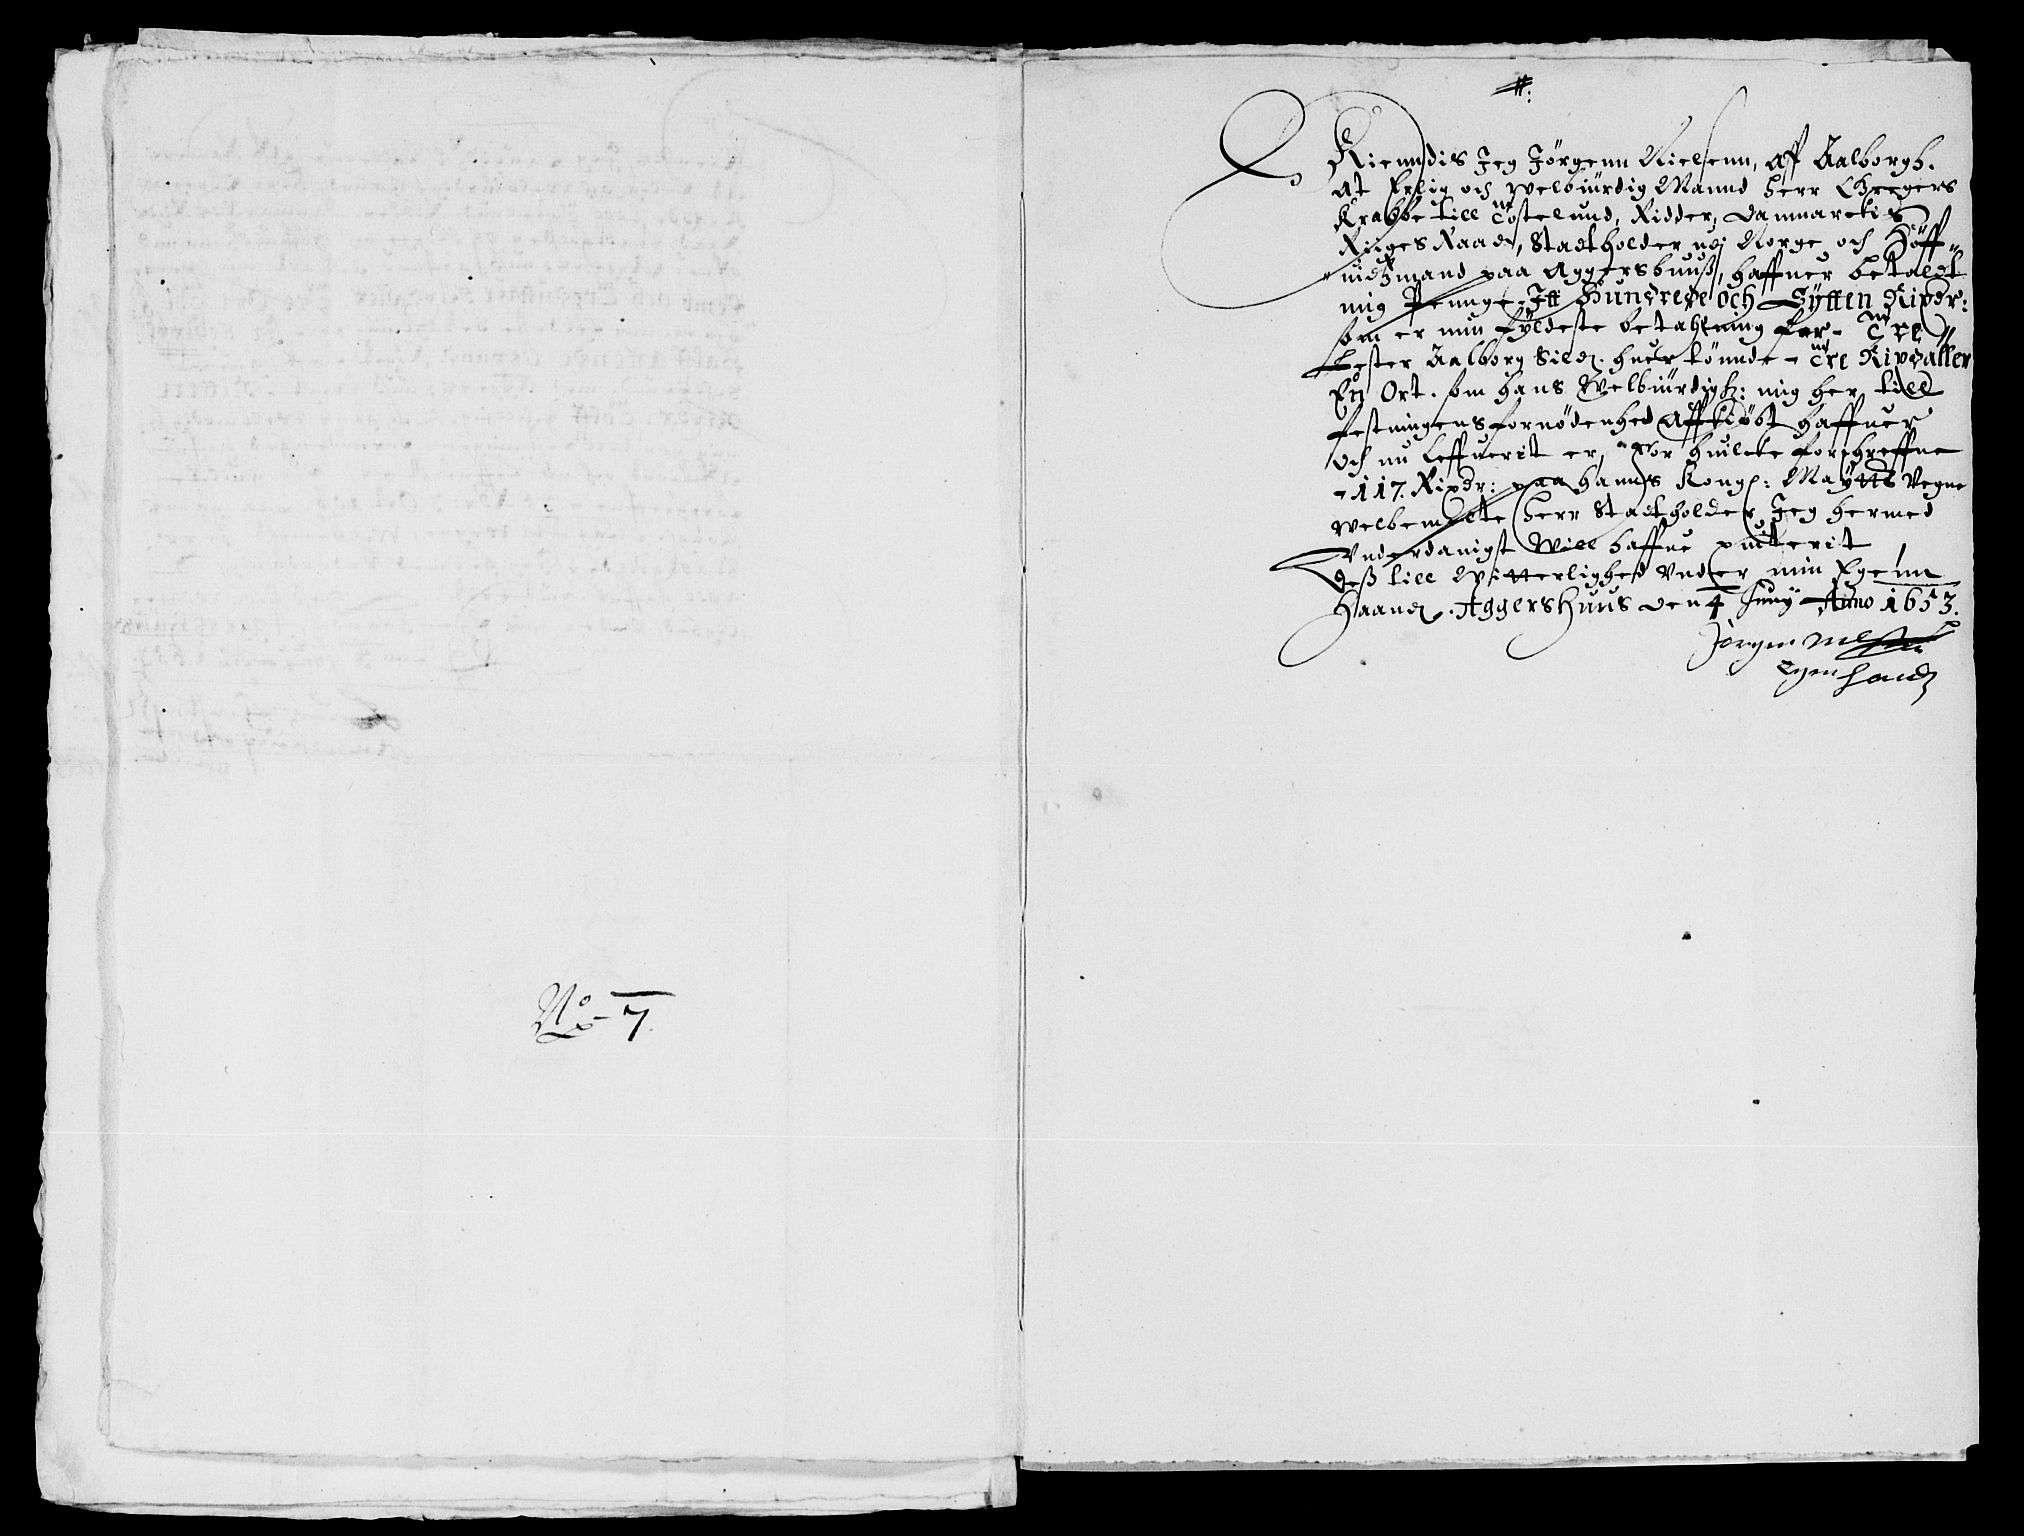 No 7.
Kienndis Jeg Jörgenn Nielsenn, aff Aalborgh.
at Erlig och Welbiurdig Mannd Herr Gregers
Krabbe till Tostelund, Ridder, Danmarckis
Riges Raad, Stadtholder udj Norge och Höff-
uidtzmand paa Aggershuuß, haffuer betaldt
mig Penge, Itt Hundrede Och Sytten Rixdr:
som er min fyldeste betahlning for - Tre
Lester Aalborg Sild. huer tönnde - Tre Rixdaller
En Ort. som hans Welbiurdigh: mig her till
festningens fornödenhed affkiöbt haffuer
och nu Leffuerit er, For huilcke forschreffne
- 117. Rixdr: paa hanns Kongl: Maytts Vegne
Welbemelte Herr Stadtholder, Jeg hermed
Vnderdanigst Will haffue quiterit,
deß till Witterlighed Vnder min Egenn
Haand. Aggershuus den 4 Juny Anno 1653.
Jörgen
Egen Handt